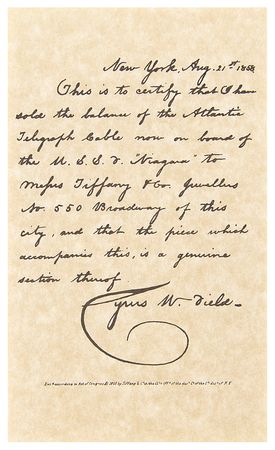 New York, Aug. 21st, 1858
This is to certify that I have
sold the balance of the Atlantic
Telegraph Cable now on board of
the U.S.S.F. "Niagara" to
Messrs Tiffany & Co. Jewellers
No. 550 Broadway of this
city, and that the piece which
accompanies this, is a genuine
section thereof.
Cyrus W. Field
according to Act of Congress 1858 by Tiffany & Co. in the